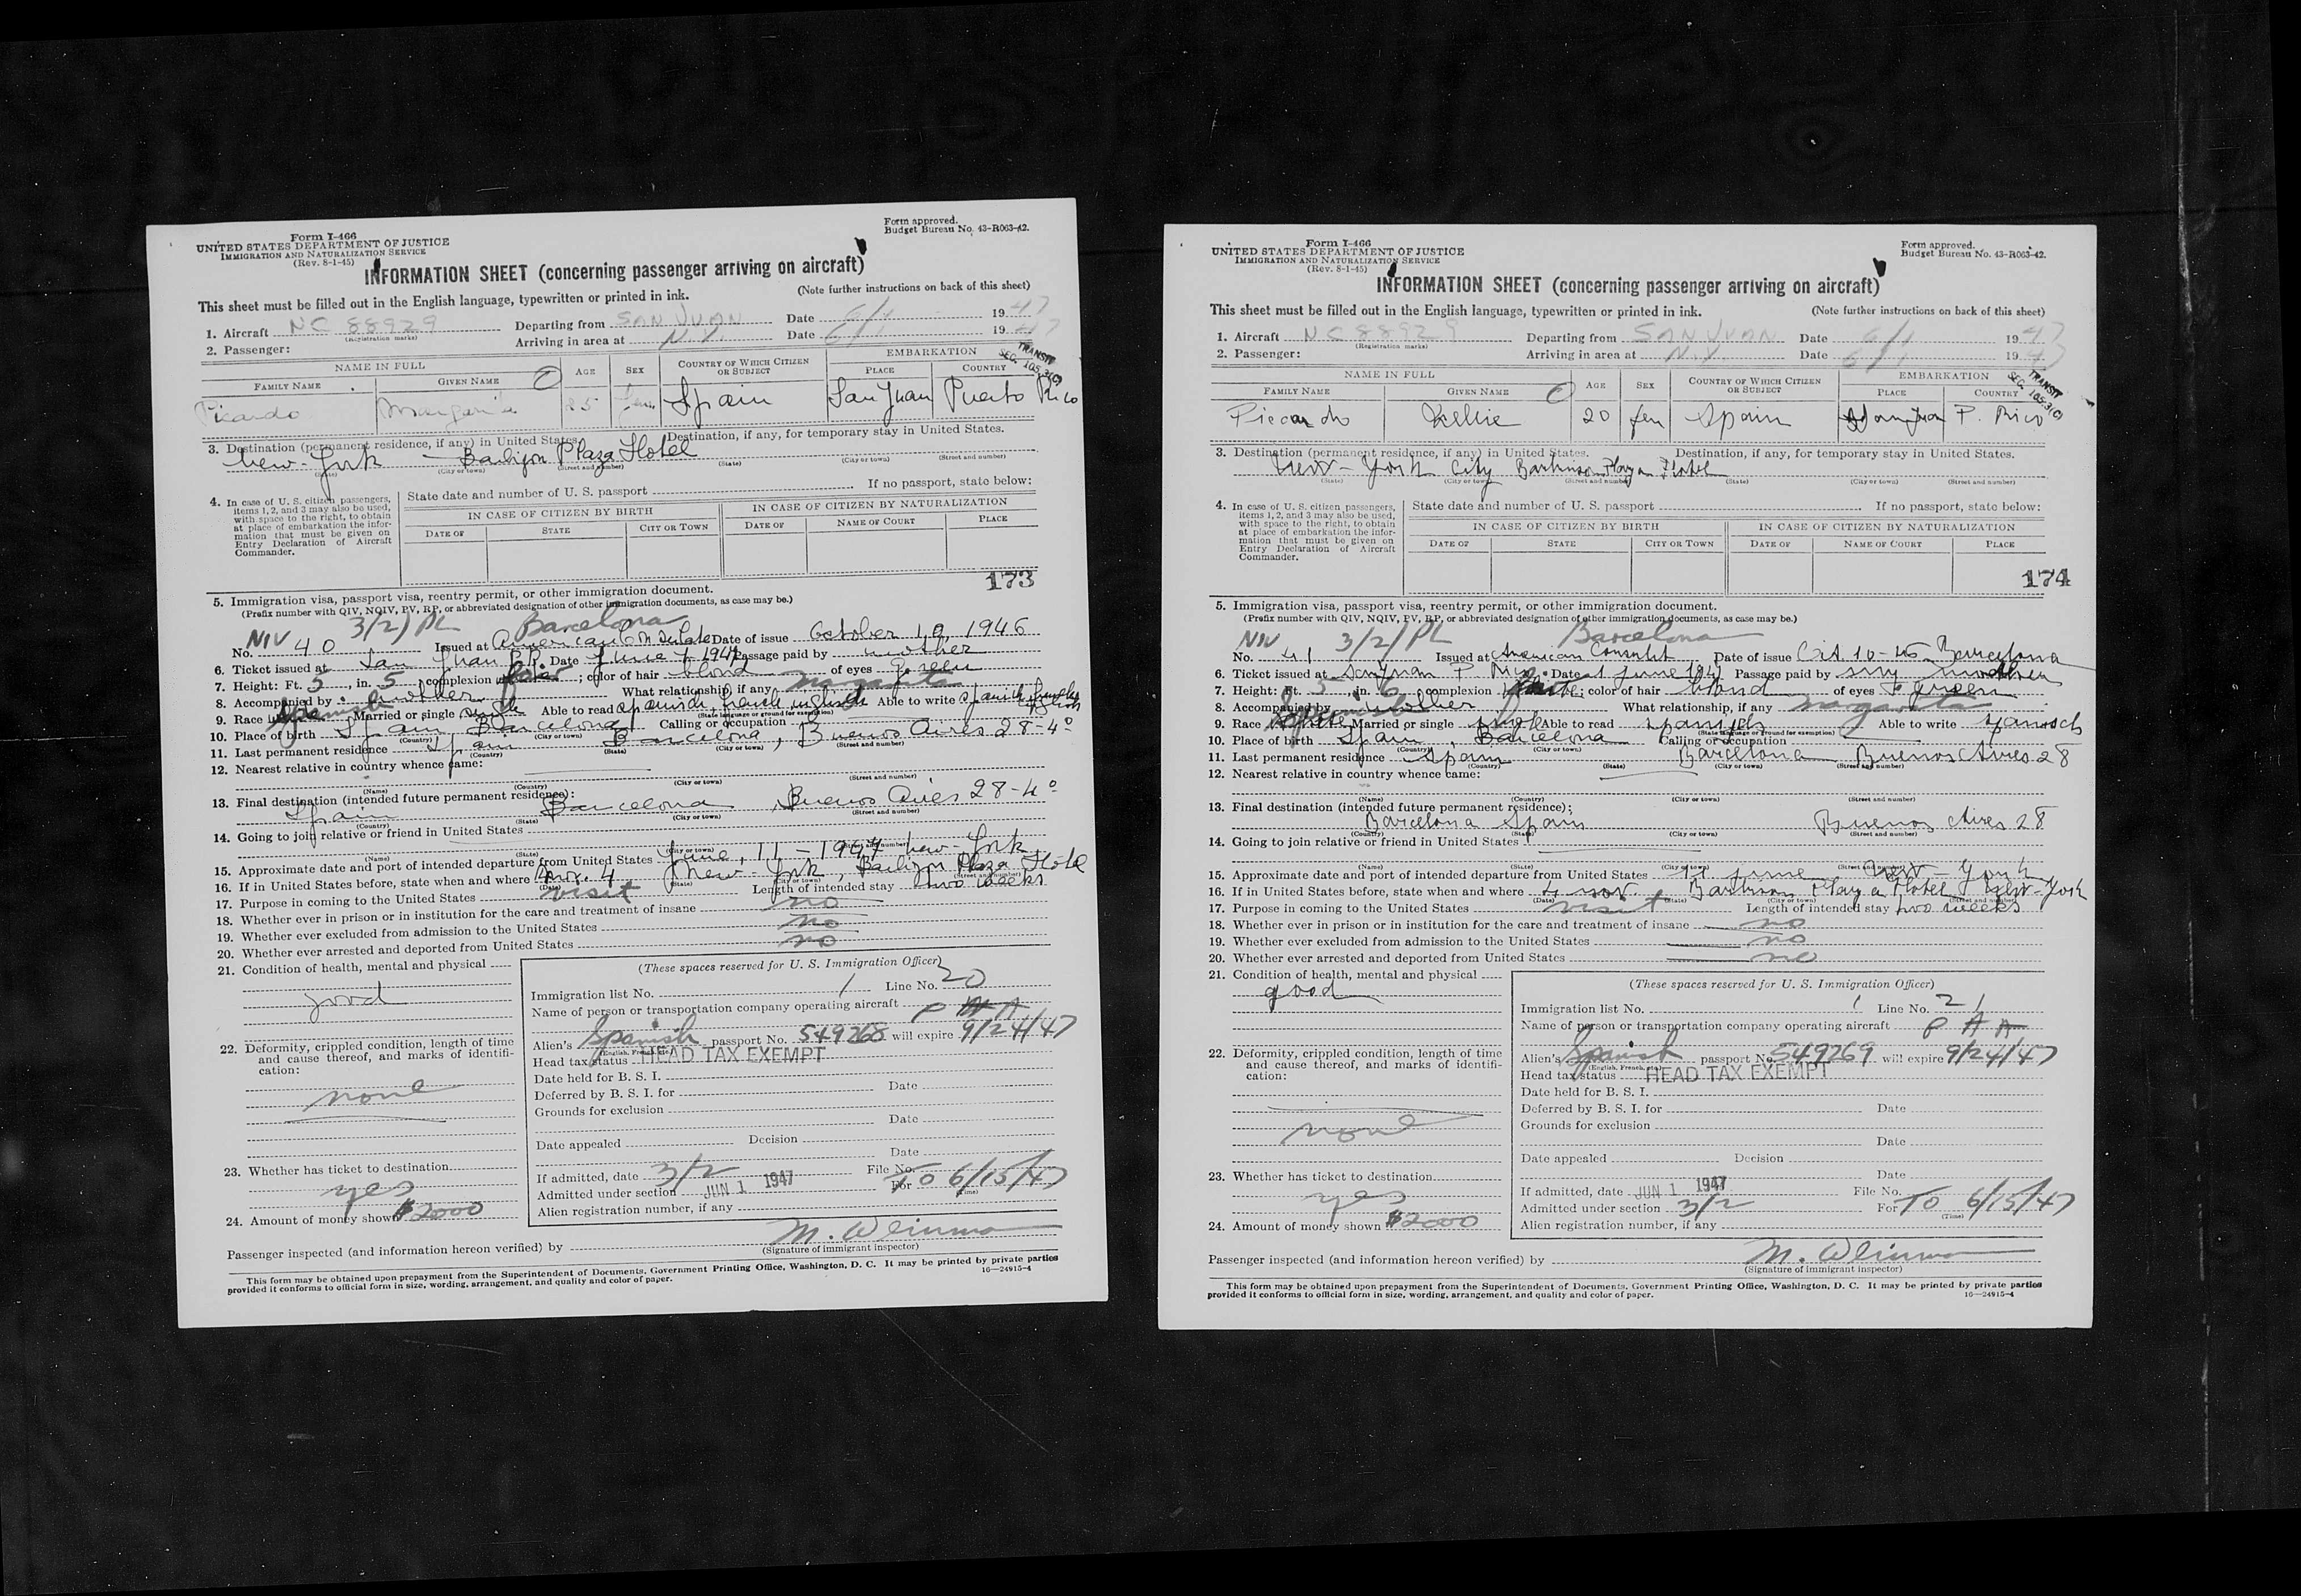 Form I-466
UNITED STATES DEPARTMENT OF JUSTICE
IMMIGRATION AND NATURALIZATION SERVICE
(Rev. 8-1-45)
Form approved.
Budget Bureau No. 43-R063-42.
INFORMATION SHEET (concerning passenger arriving on aircraft)
This sheet must be filled out in the English language, typewritten or printed in ink. (Note further instructions on back of this sheet)
1. Aircraft NC 88929 Departing from SAN JUAN Date 6/1 1947
(Registration marks)
2. Passenger: Arriving in area at N.Y. Date 6/1 1947
TRANSIT
SEC. 105.3(C)
NAME IN FULL AGE SEX COUNTRY OF WHICH CITIZEN OR SUBJECT EMBARKATION
FAMILY NAME GIVEN NAME PLACE COUNTRY
Picardo Margarita 25 fem Spain San Juan Puerto Rico
3. Destination (permanent residence, if any) in United States. Destination, if any, for temporary stay in United States.
New-York Plaza Hotel
(State) (City or town) (Street and number) (State) (City or town) (Street and number)
4. In case of U. S. citizen passengers, items 1, 2, and 3 may also be used, with space to the right, to obtain at place of embarkation the information that must be given on Entry Declaration of Aircraft Commander.
State date and number of U. S. passport If no passport, state below:
IN CASE OF CITIZEN BY BIRTH IN CASE OF CITIZEN BY NATURALIZATION
DATE OF STATE CITY OR TOWN DATE OF NAME OF COURT PLACE
173
5. Immigration visa, passport visa, reentry permit, or other immigration document.
(Prefix number with QIV, NQIV, PV, RP, or abbreviated designation of other immigration documents, as case may be.)
NIV 3/2) PL Barcelona
No. 40 Issued at American Consulate Date of issue October 10, 1946
6. Ticket issued at San Juan P.R. Date June 1 1947 Passage paid by mother
7. Height: Ft. 5, in. 5, complexion ; color of hair blond of eyes green
8. Accompanied by mother What relationship, if any margarita
9. Race Spanish Married or single single Able to read spanish, french, english Able to write spanish french english
(State language or ground for exemption)
10. Place of birth Spain Barcelona Calling or occupation
(Country) (City or town)
11. Last permanent residence Spain Barcelona, Buenos Aires 28-4º
(Country) (State) (City or town) (Street and number)
12. Nearest relative in country whence came:
(Name) (Country) (City or town) (Street and number)
13. Final destination (intended future permanent residence):
Spain Barcelona Buenos Aires 28-4º
(Country) (State) (City or town) (Street and number)
14. Going to join relative or friend in United States
(Name) (State) (City or town) (Street and number)
15. Approximate date and port of intended departure from United States June, 11-1947 New-York
16. If in United States before, state when and where Nov. 4 New-York, Plaza Hotel
(Date) (State) (City or town) (Street and number)
17. Purpose in coming to the United States visit Length of intended stay two weeks
18. Whether ever in prison or in institution for the care and treatment of insane no
19. Whether ever excluded from admission to the United States no
20. Whether ever arrested and deported from United States no
21. Condition of health, mental and physical
good
22. Deformity, crippled condition, length of time and cause thereof, and marks of identification:
none
23. Whether has ticket to destination
yes
24. Amount of money shown $2000
(These spaces reserved for U. S. Immigration Officer)
Immigration list No. 1 Line No. 20
Name of person or transportation company operating aircraft PAA
Alien's Spanish passport No. 549268 will expire 9/24/47
(English, French, etc.)
Head tax status HEAD TAX EXEMPT
Date held for B. S. I.
Deferred by B. S. I. for Date
Grounds for exclusion
Date
Date appealed Decision
Date
If admitted, date 3/2 File No.
Admitted under section JUN 1 1947 For TO 6/15/47
(Time)
Alien registration number, if any
Passenger inspected (and information hereon verified) by
(Signature of immigrant inspector)
This form may be obtained upon prepayment from the Superintendent of Documents, Government Printing Office, Washington, D. C. It may be printed by private parties
provided it conforms to official form in size, wording, arrangement, and quality and color of paper. 16—24915-4
Form I-466
UNITED STATES DEPARTMENT OF JUSTICE
IMMIGRATION AND NATURALIZATION SERVICE
(Rev. 8-1-45)
Form approved.
Budget Bureau No. 43-R063-42.
INFORMATION SHEET (concerning passenger arriving on aircraft)
This sheet must be filled out in the English language, typewritten or printed in ink. (Note further instructions on back of this sheet)
1. Aircraft NC 88929 Departing from SAN JUAN Date 6/1 1947
(Registration marks)
2. Passenger: Arriving in area at N.Y. Date 6/1 1947
TRANSIT
SEC. 105.3(C)
NAME IN FULL AGE SEX COUNTRY OF WHICH CITIZEN OR SUBJECT EMBARKATION
FAMILY NAME GIVEN NAME PLACE COUNTRY
Piccardo Nellie 20 fem Spain San Juan P. Rico
3. Destination (permanent residence, if any) in United States. Destination, if any, for temporary stay in United States.
New-York City Plaza Hotel
(State) (City or town) (Street and number) (State) (City or town) (Street and number)
4. In case of U. S. citizen passengers, items 1, 2, and 3 may also be used, with space to the right, to obtain at place of embarkation the information that must be given on Entry Declaration of Aircraft Commander.
State date and number of U. S. passport If no passport, state below:
IN CASE OF CITIZEN BY BIRTH IN CASE OF CITIZEN BY NATURALIZATION
DATE OF STATE CITY OR TOWN DATE OF NAME OF COURT PLACE
174
5. Immigration visa, passport visa, reentry permit, or other immigration document.
(Prefix number with QIV, NQIV, PV, RP, or abbreviated designation of other immigration documents, as case may be.)
NIV 3/2) PL Barcelona
No. 41 Issued at American Consulat Date of issue Oct. 10-46 Barcelona
6. Ticket issued at San Juan P Rico Date 1 June 1947 Passage paid by my mother
7. Height: Ft. 5 in. 6 complexion white; color of hair blond of eyes green
8. Accompanied by mother What relationship, if any margarita
9. Race Married or single single Able to read spanish Able to write spanisch
(State language or ground for exemption)
10. Place of birth Spain, Barcelona Calling or occupation
(Country) (City or town)
11. Last permanent residence Spain Barcelona Buenos Aires 28
(Country) (City or town) (Street and number)
12. Nearest relative in country whence came:
(Name) (Country) (City or town) (Street and number)
13. Final destination (intended future permanent residence):
Barcelona Spain Buenos Aires 28
(Country) (State) (City or town) (Street and number)
14. Going to join relative or friend in United States
(Name) (State) (City or town) (Street and number)
15. Approximate date and port of intended departure from United States 11 june New-York
16. If in United States before, state when and where 4 nov. Plaza Hotel New-York
(Date) (State) (City or town) (Street and number)
17. Purpose in coming to the United States visit Length of intended stay two weeks
18. Whether ever in prison or in institution for the care and treatment of insane no
19. Whether ever excluded from admission to the United States no
20. Whether ever arrested and deported from United States no
21. Condition of health, mental and physical
good
22. Deformity, crippled condition, length of time and cause thereof, and marks of identification:
none
23. Whether has ticket to destination
yes
24. Amount of money shown $2000
(These spaces reserved for U. S. Immigration Officer)
Immigration list No. 1 Line No. 21
Name of person or transportation company operating aircraft PAA
Alien's Spanish passport No. 549269 will expire 9/24/47
(English, French, etc.)
Head tax status HEAD TAX EXEMPT
Date held for B. S. I.
Deferred by B. S. I. for Date
Grounds for exclusion
Date
Date appealed Decision
Date
If admitted, date JUN 1 1947 File No.
Admitted under section 3/2 For TO 6/15/47
(Time)
Alien registration number, if any
Passenger inspected (and information hereon verified) by
(Signature of immigrant inspector)
This form may be obtained upon prepayment from the Superintendent of Documents, Government Printing Office, Washington, D. C. It may be printed by private parties
provided it conforms to official form in size, wording, arrangement, and quality and color of paper. 16—24915-4